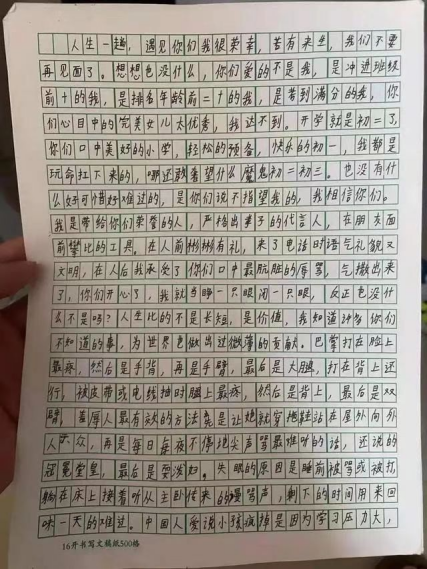 人生一趟，遇见你们我很荣幸，若有来生，我们不要
再见面了。想想也没什么，你们爱的不是我，是冲进班级
前十的我，是排名年龄前二十的我，是带到满分的我，你
们心目中的完美女儿太优秀，我达不到。开学就是初二了，
你们口中美好的小学，轻松的预备，快乐的初一，我都是
玩命扛下来的，哪还敢奢望什么魔鬼初二初三。也没有什
么好可惜好难过的，是你们说不指望我的，我相信你们。
我是带给你们荣誉的人，严格出事子的代言人，在朋友面
前攀比的工具。在人前彬彬有礼，来了电话时语气礼貌又
文明，在人后我承受了你们口中最肮脏的辱骂，气撒出来
了，你们开心了，我就当睁一只眼闭一只眼，反正也没什
么不是吗？人生比的不是长短，是价值，我知道许多你们
不知道的事，为世界也做出过微薄的贡献。巴掌打在脸上
最疼，然后是手背，再是手臂，最后是大腿，打在背上还
行，被皮带或电线抽时腿上最疼，然后是背上，最后是双
臂，羞辱人最有效的方法莫是让她就穿拖鞋站在屋外向外
人示众，再是每日每夜不停地尖声骂最难听的话，还说的
冠冕堂皇，最后是耍泼妇。失眠的原因是睡前被骂或被打，
躺在床上接着听从主卧传来的谩骂声，剩下的时间用来回
味一天的难过。中国人爱说小孩疯掉是因为学习压力大，
16开书写文稿纸500格